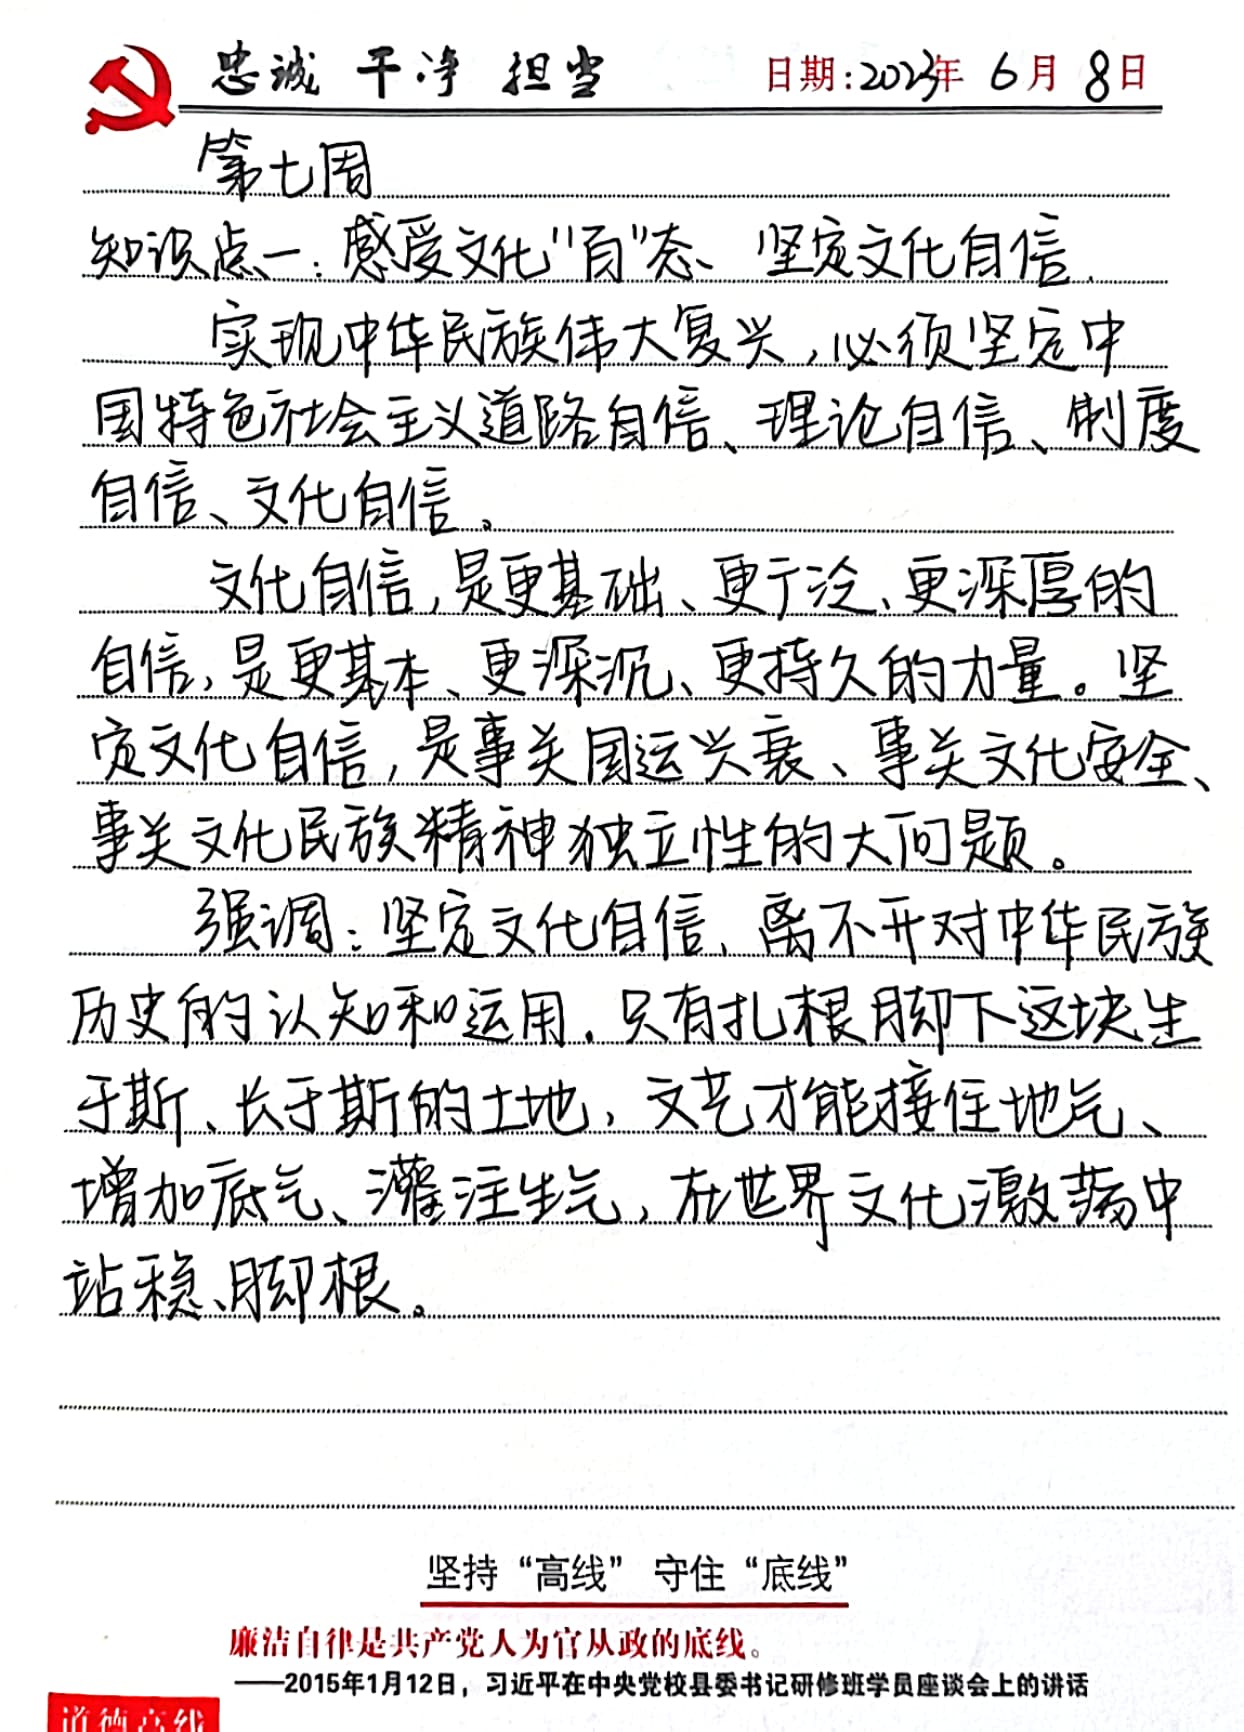 忠诚 干净 担当 日期:2023年 6月 8日
第七周
知识点一:感受文化"百"态、坚定文化自信.
实现中华民族伟大复兴,必须坚定中
国特色社会主义道路自信、理论自信、制度
自信、文化自信。
文化自信,是更基础、更广泛、更深厚的
自信,是更基本、更深沉、更持久的力量。坚
定文化自信,是事关国运兴衰、事关文化安全、
事关文化民族精神独立性的大问题。
强调:坚定文化自信、离不开对中华民族
历史的认知和运用.只有扎根脚下这块生
于斯、长于斯的土地,文艺才能接住地气、
增加底气、灌注生气,在世界文化激荡中
站稳、脚根。
坚持“高线” 守住“底线”
廉洁自律是共产党人为官从政的底线。
——2015年1月12日,习近平在中央党校县委书记研修班学员座谈会上的讲话
道德高线